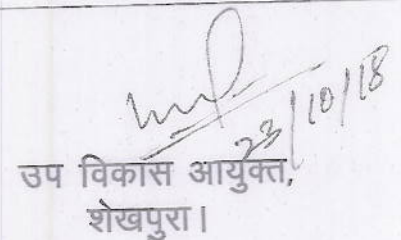 23/10/18
उप विकास आयुक्त,
शेखपुरा।